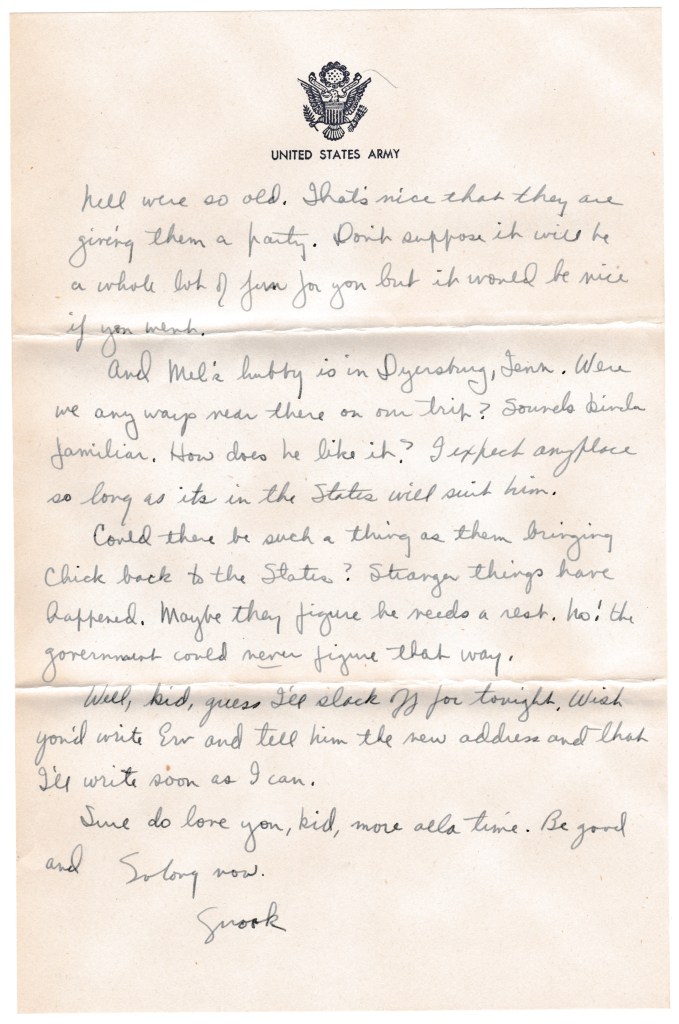 UNITED STATES ARMY
Nell were so old. That's nice that they are
giving them a party. Don't suppose it will be
a whole lot of fun for you but it would be nice
if you went.
And Mel's hubby is in Dyersburg, Tenn. Were
we any ways near there on our trip? Sounds kinda
familiar. How does he like it? I expect anyplace
so long as its in the States will suit him.
Could there be such a thing as them bringing
Chick back to the States? Stranger things have
happened. Maybe they figure he needs a rest. No! the
government could never figure that way.
Well, kid, guess I'll slack off for tonight. Wish
you'd write Erv and tell him the new address and that
I'll write soon as I can.
Sure do love you, kid, more alla time. Be good
and So long now.
Snook